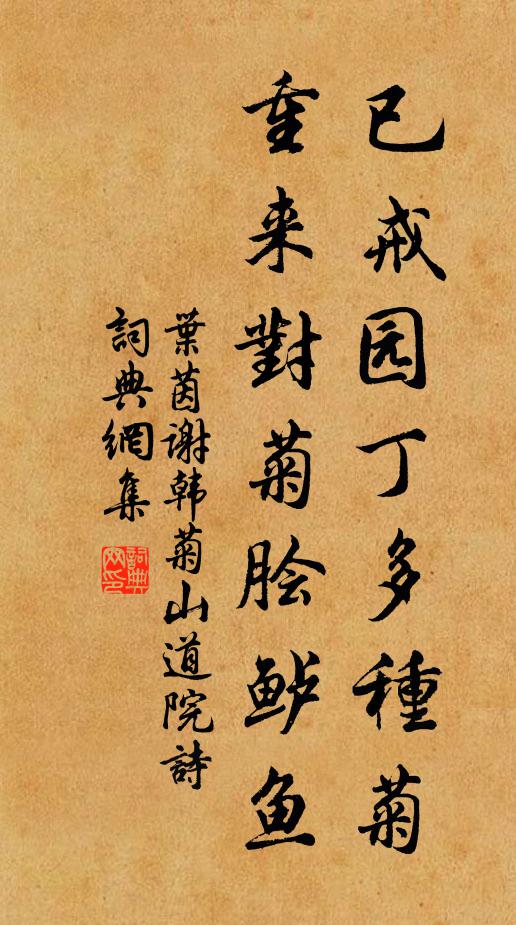 已戒园丁多種菊
重来對菊脍鲈鱼
葉茵谢韩菊山道院詩
詞典網集
詞典网印